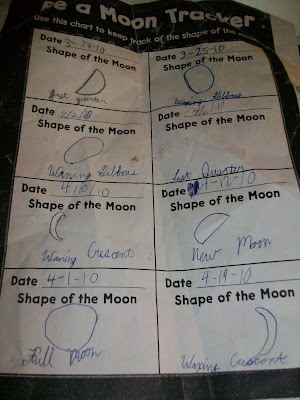 a Moon Tracker
Use this chart to keep track of the shape of the moon
Date 3-23-10
Shape of the Moon
first quarter
Date 3-25-10
Shape of the Moon
Waxing Gibbous
Date
Shape of the Moon
Waning Gibbous
Date 4/6/10
Shape of the Moon
Last Quarter
Date 4/10/10
Shape of the Moon
Waning Crescent
Date 4-12-10
Shape of the Moon
New Moon
Date 4-1-10
Shape of the Moon
Full Moon
Date 4-19-10
Shape of the Moon
Waxing Crescent